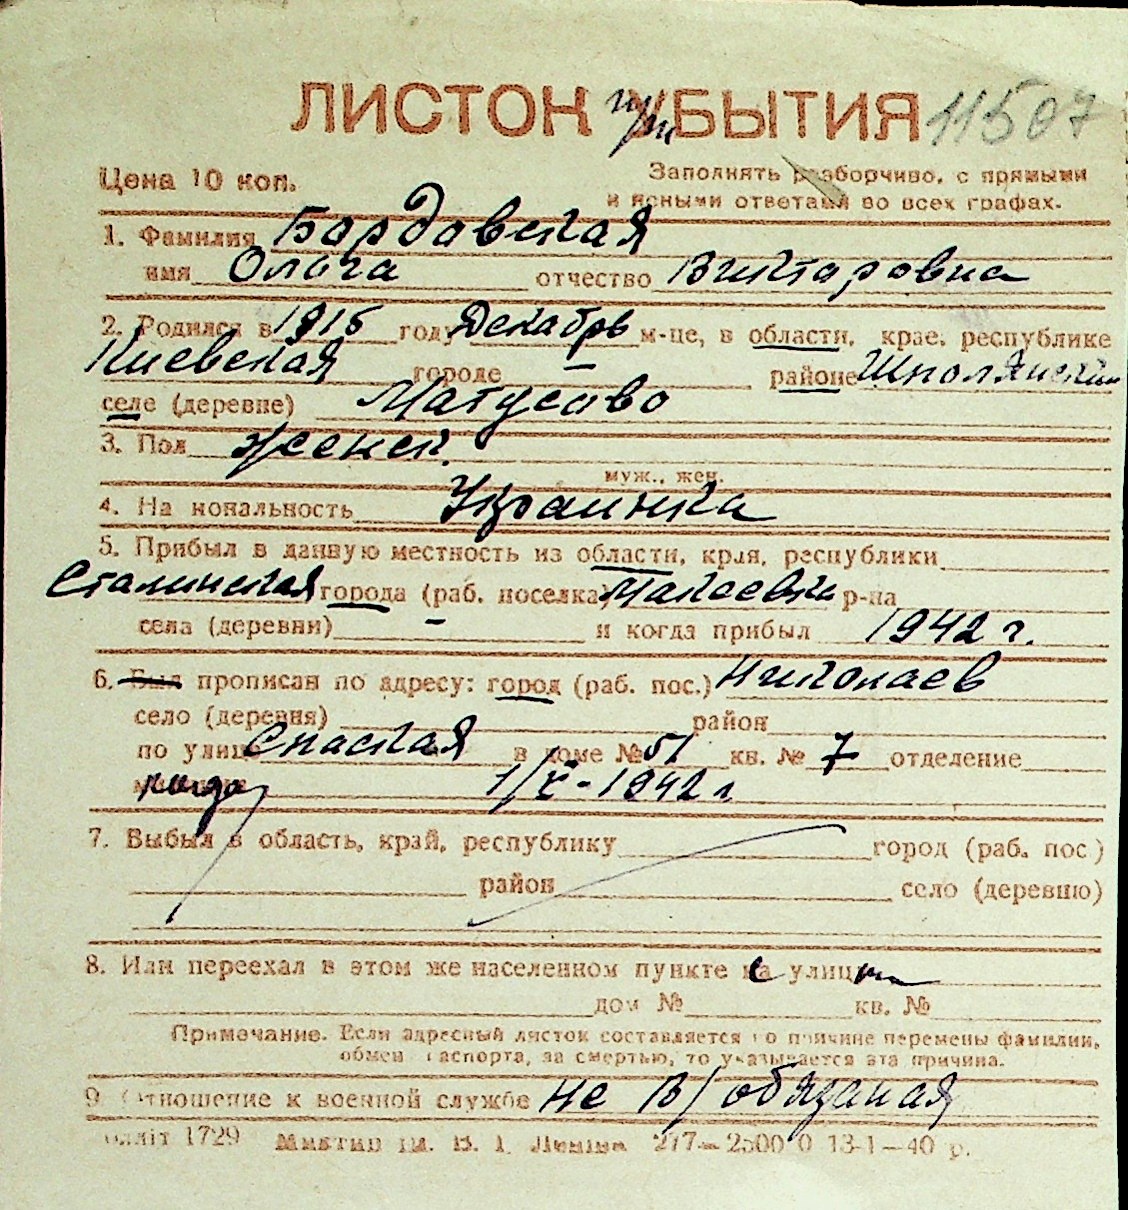 ЛИСТОК УБЫТИЯ 11507
Цена 10 коп.
Заполнять разборчиво, с прямыми
и ясными ответами во всех графах.
1. Фамилия Бордовская
имя Ольга отчество Викторовна
2. Родился в 1915 году Декабрь м-це, в области, крае, республике
Киевская городе – районе Шполянский
селе (деревне) Матусово
3. Пол женск.
муж., жен.
4. На нональность Украинка
5. Прибыл в данную местность из области, края, республики
Сталинская города (раб. поселка) Макеевки р-на
села (деревни) – и когда прибыл 1942 г.
6. Был прописан по адресу: город (раб. пос.) Николаев
село (деревня) район
по улице Спаская в доме № 51 кв. № 7 отделение
когда 1/X-1942 г
7. Выбыл в область, край, республику город (раб. пос)
район село (деревню)
8. Или переехал в этом же населенном пункте с улицы
дом № кв. №
Примечание. Если адресный листок составляется по причине перемены фамилии,
обмен паспорта, за смертью, то указывается эта причина.
9 Отношение к военной службе не в/обязаная
1729 277—2500 0 13-1—40 р.